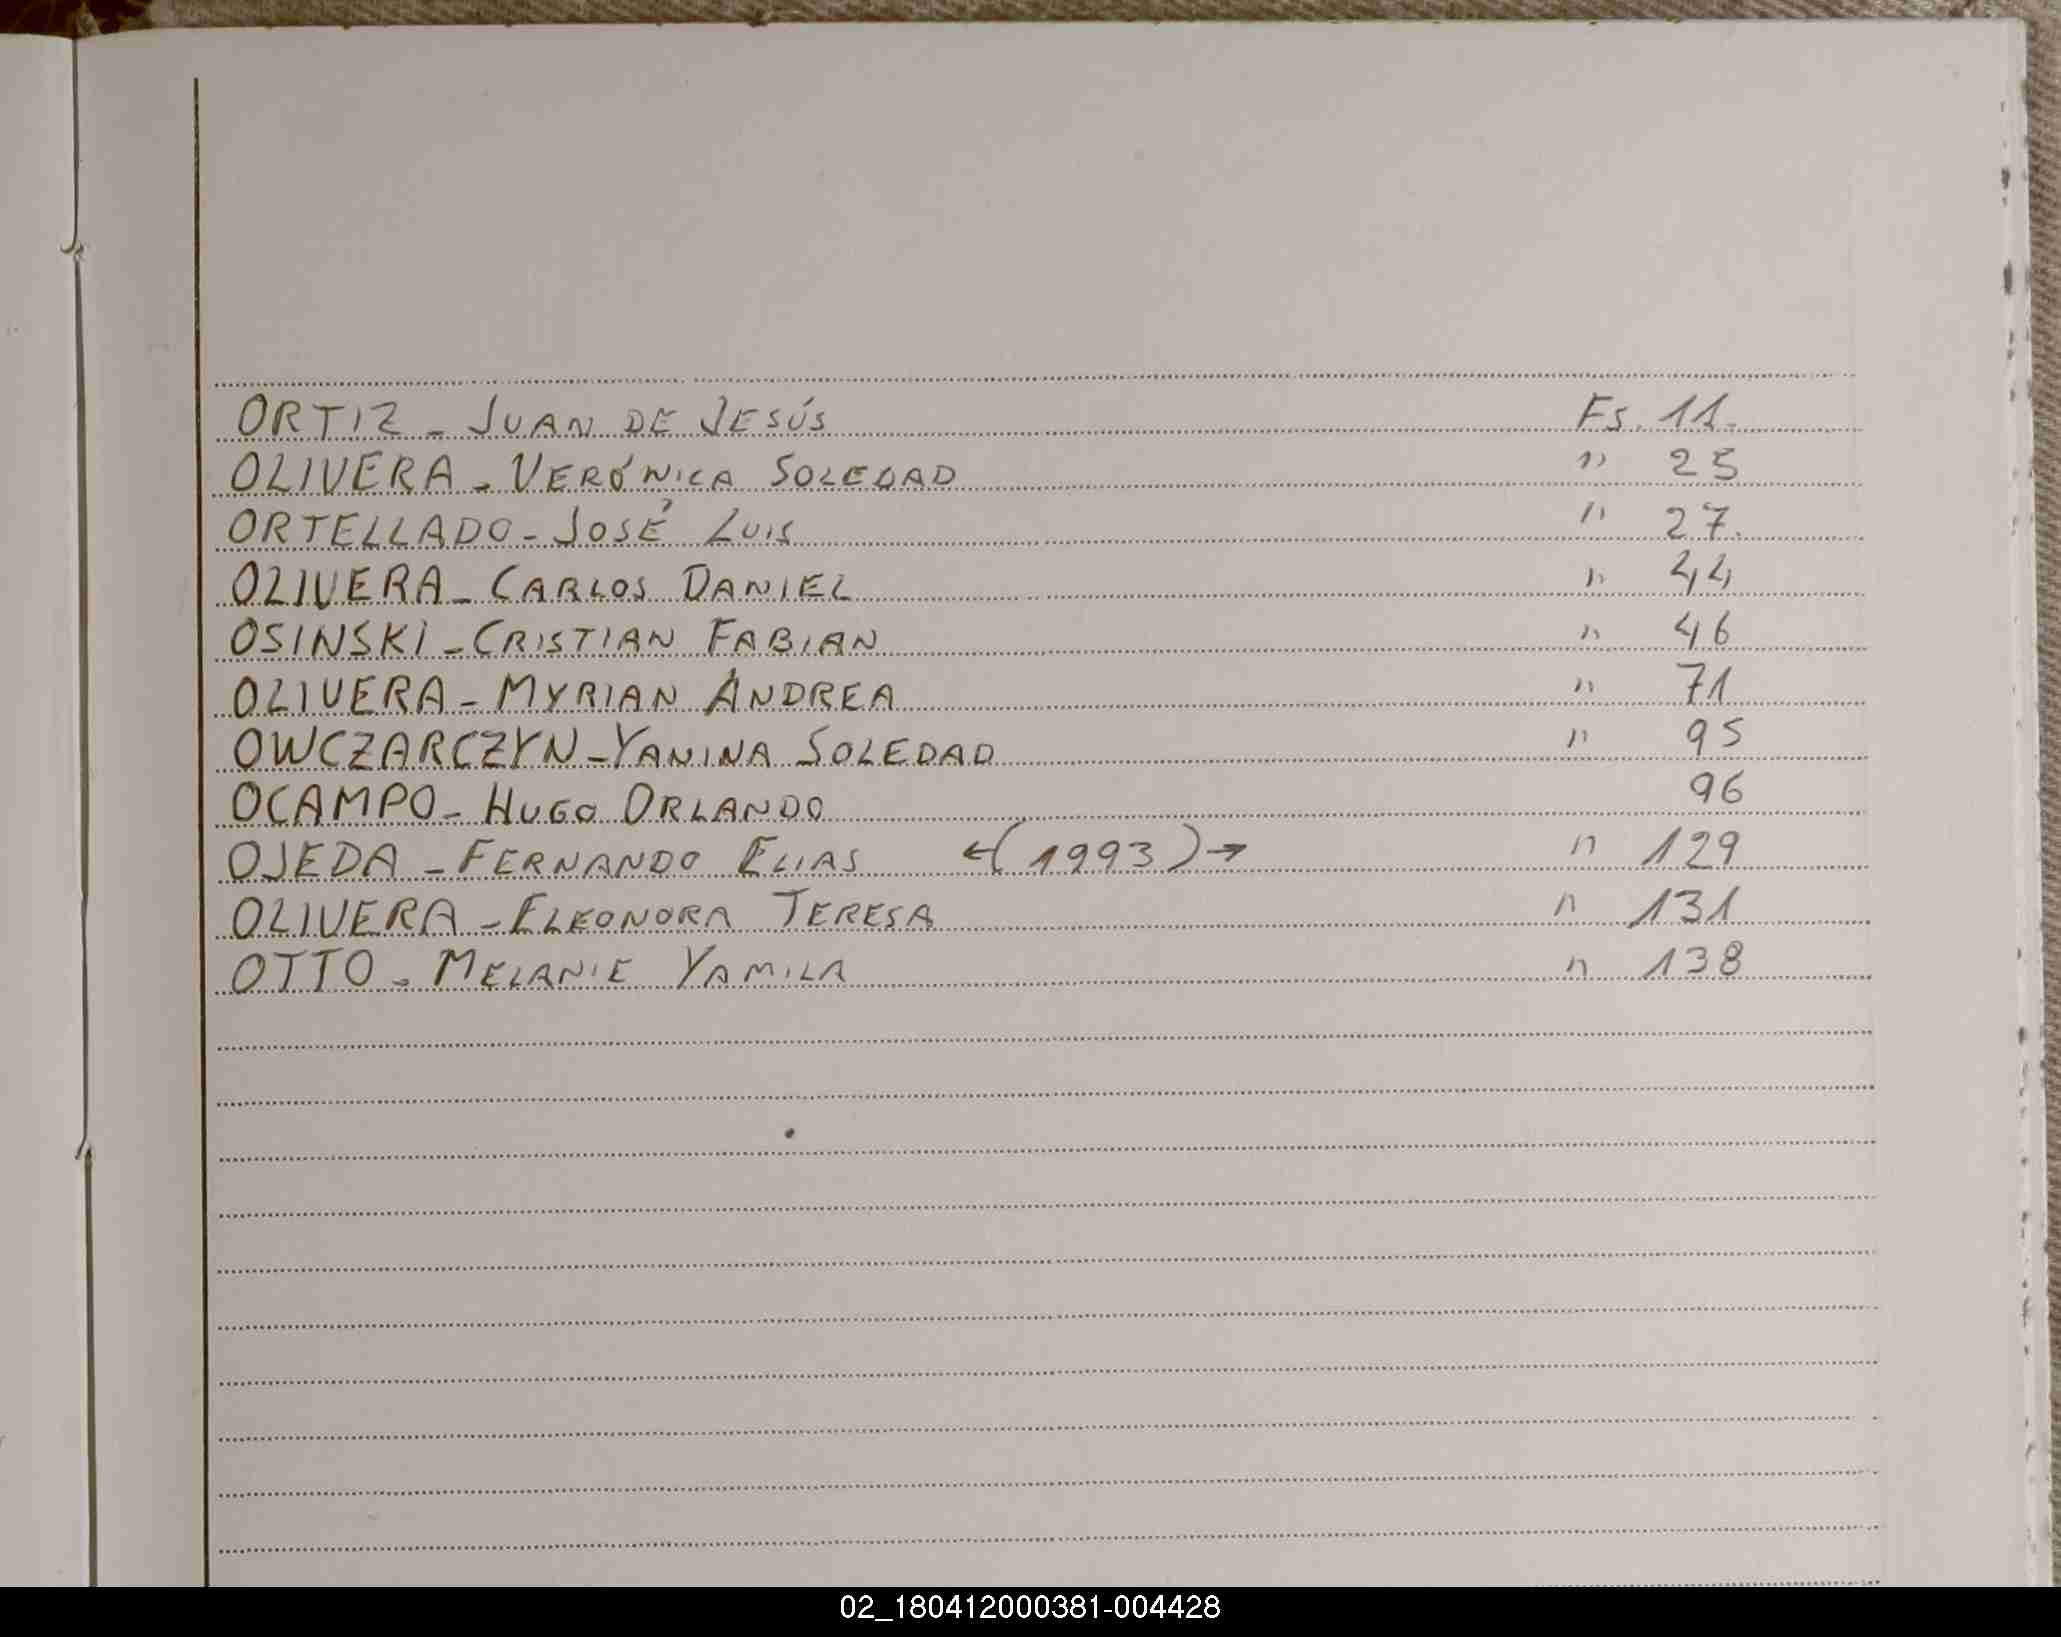 ORTIZ - JUAN DE JESÚS Fs. 11.
OLIVERA - VERÓNICA SOLEDAD " 25
ORTELLADO - JOSÉ LUIS " 27.
OLIVERA - CARLOS DANIEL " 44
OSINSKI - CRISTIAN FABIAN " 46
OLIVERA - MYRIAN ANDREA " 71
OWCZARCZYN - YANINA SOLEDAD " 95
OCAMPO - HUGO ORLANDO 96
OJEDA - FERNANDO ELIAS ←(1993)→ " 129
OLIVERA - ELEONORA TERESA " 131
OTTO - MELANIE YAMILA " 138
02_180412000381-004428